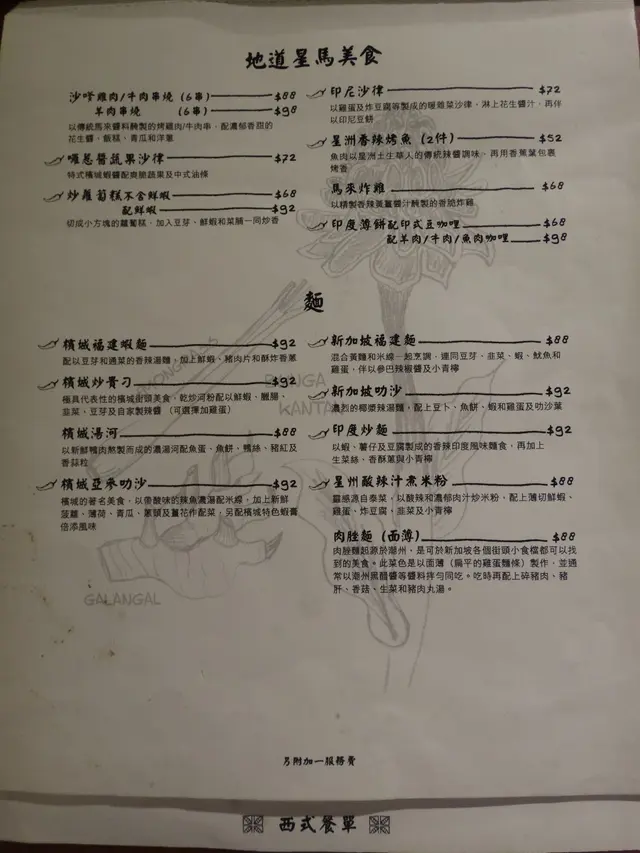 地道星馬美食
沙嗲雞肉/牛肉串燒 (6串) $88
羊肉串燒 (6串) $98
以傳統馬來醬料醃製的烤雞肉/牛肉串，配濃郁香甜的
花生醬，飯糕、青瓜和洋蔥
囉惹醬蔬果沙律 $72
特式檳城蝦醬配爽脆蔬果及中式油條
炒蘿蔔糕不含鮮蝦 $68
配鮮蝦 $92
切成小方塊的蘿蔔糕，加入豆芽、鮮蝦和菜脯一同炒香
印尼沙律 $72
以雞蛋及炸豆腐等製成的暖雜菜沙律，淋上花生醬汁，再伴
以印尼豆餅
星洲香辣烤魚 (2件) $52
魚肉以星洲土生華人的傳統辣醬調味，再用香蕉葉包裹
烤香
馬來炸雞 $68
以精製香辣黃薑醬汁醃製的香脆炸雞
印度薄餅配印式豆咖喱 $68
配羊肉/牛肉/魚肉咖喱 $98
麵
檳城福建蝦麵 $92
配以豆芽和通菜的香辣湯麵，加上鮮蝦、豬肉片和酥炸香蔥
檳城炒貴刁 $92
極具代表性的檳城街頭美食，乾炒河粉配以鮮蝦、臘腸、
韭菜、豆芽及自家製辣醬 （可選擇加雞蛋）
檳城湯河 $88
以新鮮鴨肉熬製而成的濃湯河配魚蛋、魚餅、鴨絲、豬紅及
香蒜粒
檳城亞參叻沙 $92
檳城的著名美食，以帶酸味的辣魚濃湯配米線，加上新鮮
菠蘿、薄荷、青瓜、蔥頭及薑花作配菜，另配檳城特色蝦膏
倍添風味
新加坡福建麵 $88
混合黃麵和米線一起烹調，連同豆芽、韭菜、蝦、魷魚和
雞蛋，伴以參巴辣椒醬及小青檸
新加坡叻沙 $92
濃烈的椰漿辣湯麵，配上豆卜、魚餅、蝦和雞蛋及叻沙葉
印度炒麵 $92
以蝦、薯仔及豆腐製成的香辣印度風味麵食，再加上
生菜絲、香酥蔥與小青檸
星洲酸辣汁煮米粉 $88
靈感源自泰菜，以酸辣和濃郁肉汁炒米粉，配上薄切鮮蝦、
雞蛋、炸豆腐、韭菜及小青檸
肉脞麵 (面薄) $88
肉脞麵起源於潮州，是可於新加坡各個街頭小食檔都可以找
到的美食。此菜色是以面薄（扁平的雞蛋麵條）製作，並通
常以潮州黑醋醬等醬料拌勻同吃。吃時再配上碎豬肉、豬
肝、香菇、生菜和豬肉丸湯。
KANTAN
GALANGAL
另附加一服務費
西式餐單